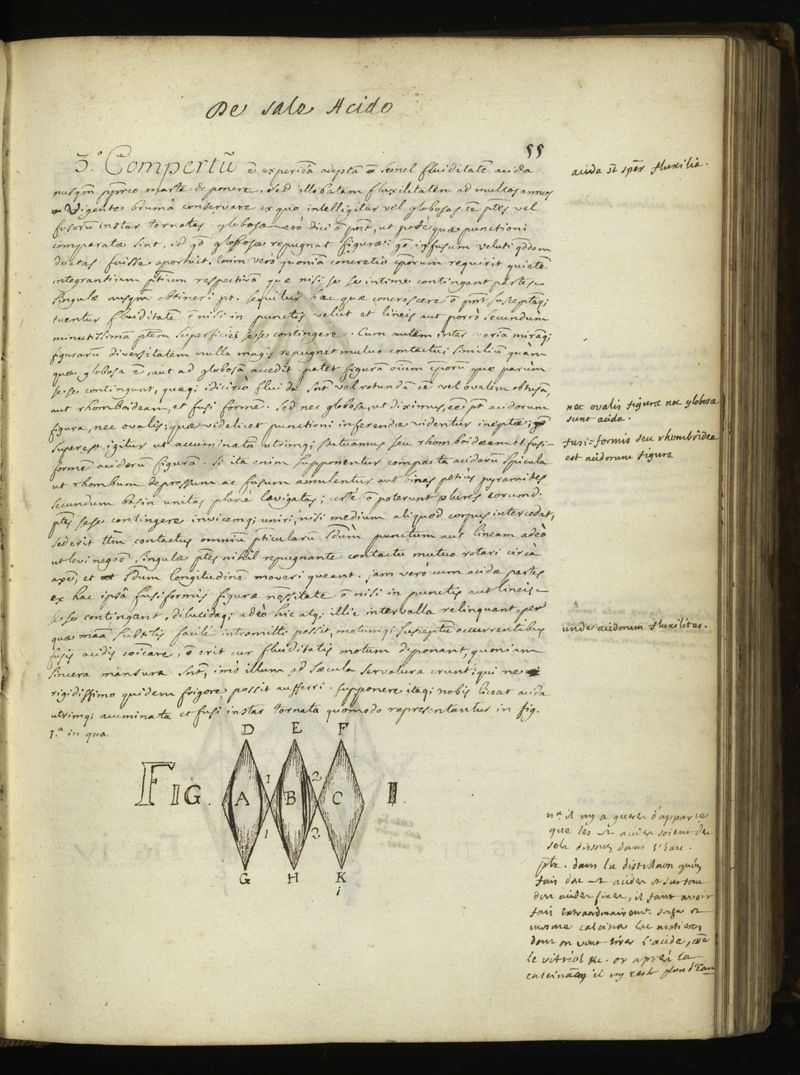 De sale Acido
55
3.º Compertū ē experiētiâ adeptā semel fluiditatē acida
nusqm̄ proprio marte deponere, sed illibatam fluxilitatem ad multos annos
Vigente brumâ conservare ex quo intelligitur vel globosas ēē ptes vel
fusorum instar tornatas. globosæ verò dici ō pnt, ut potè quæ punctioni
comparatæ sint, id qd globosæ repugnat figuræ: in fusum veluti qddam
ductas fuisse oportuit. Enim verò quoniā concretio requirit quietē
integrantium ptium respectivam quæ nisi se se intime contingant partes
singulæ nusqm̄ obtineri pt. sequitur hæc quæ concrescere ō pnt, susceptāq;
tuentur fluiditatē ō nisi in punctis velut et lineis aut porrò secundum
minutissimā ptem superficiei sese contingere. Cum autem inter variā mirāq;
figurarū diversitatem nulla magis repugnet mutuo contactui similiū quam
quæ globosa ē, aut ad globosā accedit. patet figurā oium quæ parum
se se contingunt, quæq; idcircò fluida snt vel rotundā ēē vel ovalem obtusā,
aut rhomboideam, et fusi formē. Sed nec globosa, ut diximus, ēē pt acidorum
figura, nec ovalis; quæ videlicet punctioni inferendæ videntur ineptæ;
superest igitur ut accuminatā utrimq; statuamus seu rhomboideam et fusi-
formē acidorū figurā. Si ita enim supponentur compacta acidorū spicula
ut rhombum depressum ac fusum æmulentur aut binas potius pyramides
secundum basin unitas planè lævigatas; certè ō poterunt plures eorumd.
ptes sese contingere invicemq; uniri, nisi medium aliquod corpus intercedat,
sed erit tm contactus omniū pticularū sdum punctum aut lineam adeò
ut levi negoo singulæ ptes nihil repugnante contactu mutuo rotari circa
axē, et sdum longitudinē moveri queant. jam verò cum acidæ partes
ex hac ipsâ fusiformis figuræ necessitate ō nisi in punctis aut lineis
se se contingant, dilucidaq; adeò hic atq; illic intervalla relinquant, per
quæ mãa subtilis facile intromitti possit, motumq; susceptū occurrentibus
fusis acidis coicare, ō erit cur fluiditatis motum deponant, quoniam
sincera mansura snt, imò illum ad sæcula servatura erunt; qui ne
rigidissimo quidem frigore possit aufferri. supponere itaq; nobis liceat acida
utrimq; acuminata et fusi instar tornata quomodo repræsentantur in fig.
1.ª in qua
acida st sper fluxilia.
nec ovalis figuræ nec globosæ
sunt acida.
fusi-formis seu rhomboidea
est acidorum figura
unde acidorum fluxilitas.
D E F
FIG. A 1 1 B 2 2 C I.
G H K
i
nª il n'y a guerre d'apparence
que les acides soient
sels dissous dans l'Eau.
dans la distillaon qu'on
fait des acides et surtout
des acides fixes, il faut avoir
fait extraordinairemt. secher et
mesme calciner les matieres
dont on veut tirer l'acide, coē
le vitriol &c. or apres la
calcinaon il n'y reste plus d'Eau